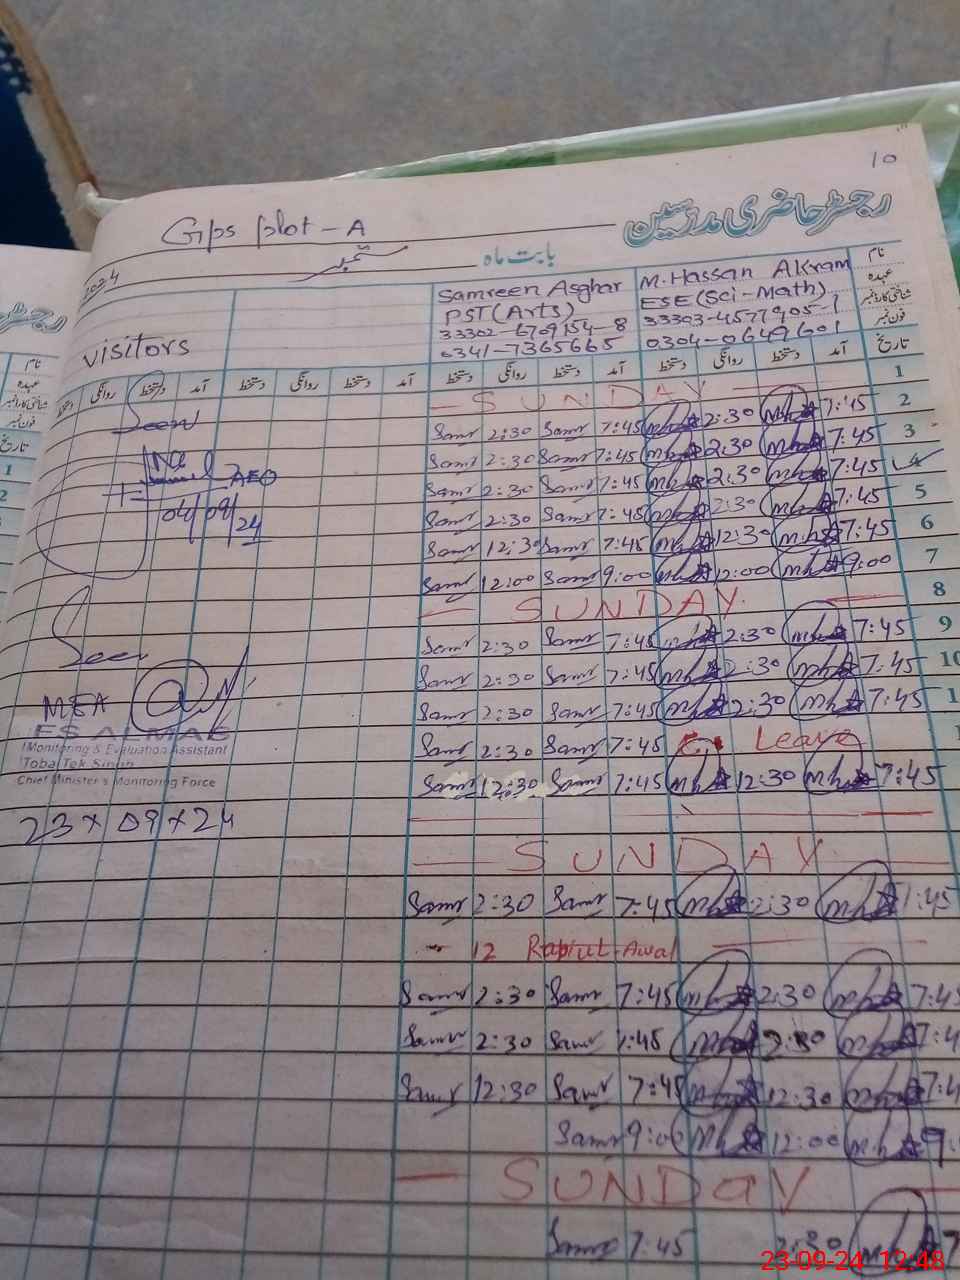 10
رجسٹر حاضری مدرسین
Gps plot-A
بابت ماہ ستمبر
2024
نام
عہدہ
شناختی کارڈ نمبر
فون نمبر
M.Hassan Akram
ESE(Sci-Math)
33303-4577905-1
0304-0649601
Samreen Asghar
PST(Arts)
33302-6709154-8
0341-7365665
visitors
تاریخ آمد دستخط روانگی دستخط آمد دستخط روانگی دستخط آمد دستخط روانگی دستخط
1 — SUNDAY —
2 Samr 2:30 Samr 7:45 2:30 7:45
3 Samr 2:30 Samr 7:45 2:30 7:45
4 Samr 2:30 Samr 7:45 2:30 7:45
5 Samr 2:30 Samr 7:45 2:30 7:45
6 Samr 12:30 Samr 7:45 12:30 7:45
7 Samr 12:00 Samr 9:00 12:00 9:00
8 — SUNDAY —
9 Samr 2:30 Samr 7:45 2:30 7:45
10 Samr 2:30 Samr 7:45 2:30 7:45
1 Samr 2:30 Samr 7:45 2:30 7:45
Samr 2:30 Samr 7:45 Leave
Samr 12:30 Samr 7:45 12:30 7:45
— SUNDAY —
Samr 2:30 Samr 7:45 2:30 7:45
12 Rabiul-Awal
Samr 2:30 Samr 7:45 2:30 7:45
Samr 2:30 Samr 7:45 2:30 7:4
Samr 12:30 Samr 7:45 12:30 7:4
Samr 9:00 12:00 9:
— SUNDAY
Samr 7:45 2:30 7
Seen
AEO
04/09/24
Seen
MEA
ES ALMAS
(Monitoring & Evaluation Assistant
Toba Tek Singh
Chief Minister's Monitoring Force
23×09×24
23-09-24 12:48